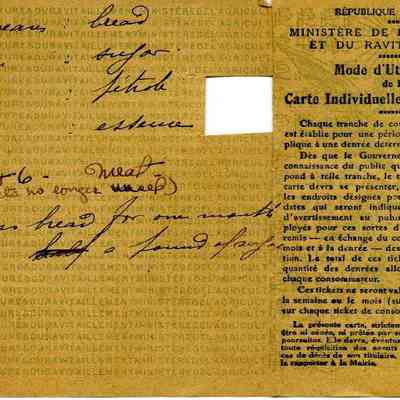 means bread
" sugar
" pétrole
" essence
6 - Meat
no longer used)
bread for one month
a pound of sugar
RÉPUBLIQUE
MINISTÈRE DE
ET DU RAVIT
Mode d'Ut
de
Carte Individuelle
Chaque tranche de cou
est établie pour une pério
plique à une denrée déter
Dès que le Gouverne
connaissance du public qu
pond à telle tranche, le
carte devra se présenter,
les endroits désignés po
dates qui seront indiqué
d'avertissement au publ
ployés pour ces sortes d
remis — en échange du co
mois et à la denrée — des
tion. Le total de ces tic
quantité des denrées allo
chaque consommateur.
Ces tickets ne seront val
la semaine ou le mois (su
sur chaque ticket de conso
La présente carte, stricten
être ni cédée, ni prêtée par so
poursuites. Elle devra, éventue
toute réquisition des agents
cas de décès de son titulaire,
la rapporter à la Mairie.